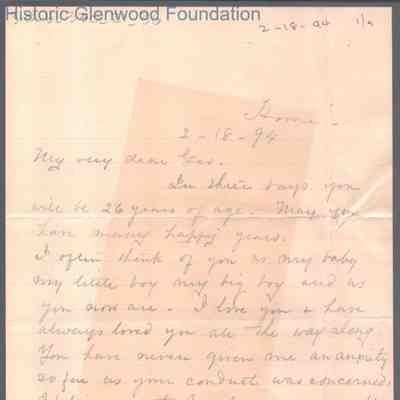 Historic Glenwood Foundation
2-18-94 1/9
Home!
2-18-94
My very dear Geo.
In three days you
will be 26 years of age. May you
have many happy years.
I often think of you as my baby
my little boy my big boy and as
you now are. I love you & have
always loved you all the way along.
You have never given me an anxiety
so far as your conduct was concerned.